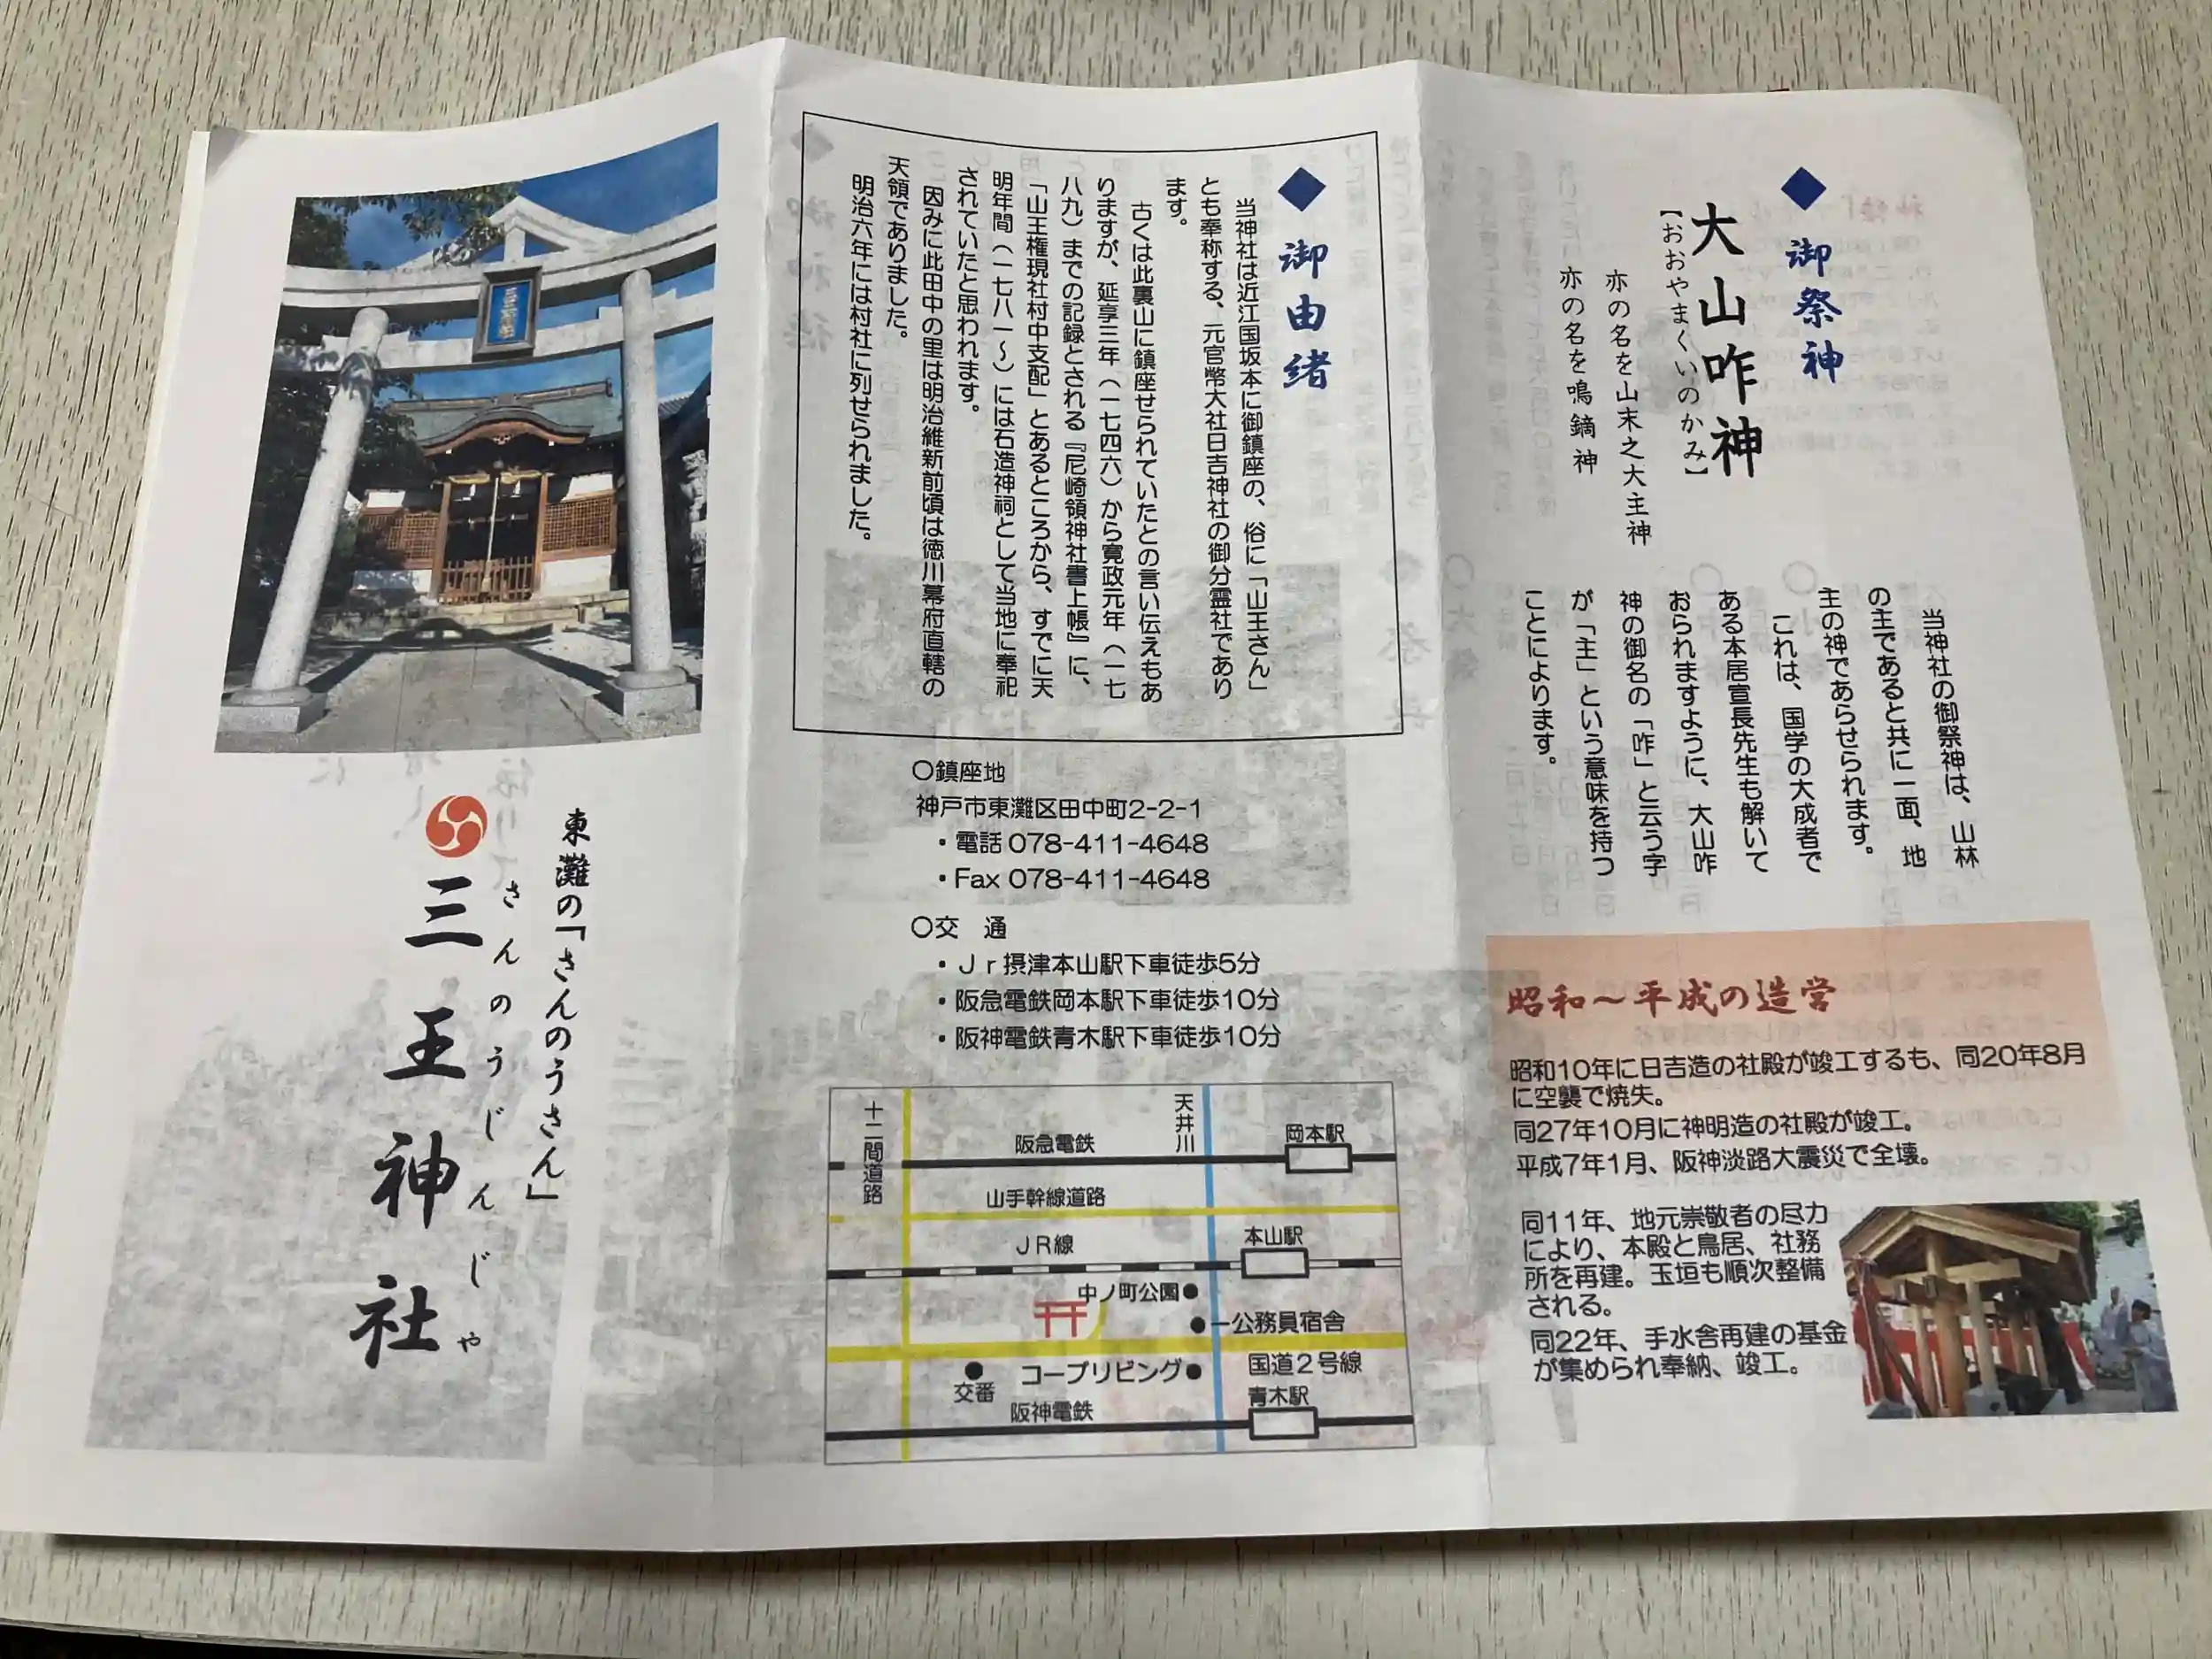 ◆御祭神
大山咋神
【おおやまくいのかみ】
亦の名を山末之大主神
亦の名を鳴鏑神
当神社の御祭神は、山林
の主であると共に一面、地
主の神であらせられます。
これは、国学の大成者で
ある本居宣長先生も解いて
おられますように、大山咋
神の御名の「咋」と云う字
が「主」という意味を持つ
ことによります。
昭和～平成の造営
昭和10年に日吉造の社殿が竣工するも、同20年8月
に空襲で焼失。
同27年10月に神明造の社殿が竣工。
平成7年1月、阪神淡路大震災で全壊。
同11年、地元崇敬者の尽力
により、本殿と鳥居、社務
所を再建。玉垣も順次整備
される。
同22年、手水舎再建の基金
が集められ奉納、竣工。
◆御由緒
当神社は近江国坂本に御鎮座の、俗に「山王さん」
とも奉称する、元官幣大社日吉神社の御分霊社であり
ます。
古くは此裏山に鎮座せられていたとの言い伝えもあ
りますが、延享三年（一七四六）から寛政元年（一七
八九）までの記録とされる『尼崎領神社書上帳』に、
「山王権現社村中支配」とあるところから、すでに天
明年間（一七八一～）には石造神祠として当地に奉祀
されていたと思われます。
因みに此田中の里は明治維新前頃は徳川幕府直轄の
天領でありました。
明治六年には村社に列せられました。
〇鎮座地
神戸市東灘区田中町2-2-1
・電話 078-411-4648
・Fax 078-411-4648
〇交　通
・Ｊｒ摂津本山駅下車徒歩5分
・阪急電鉄岡本駅下車徒歩10分
・阪神電鉄青木駅下車徒歩10分
十二間道路
天井川
阪急電鉄
岡本駅
山手幹線道路
ＪＲ線
本山駅
中ノ町公園●
●ー公務員宿舎
コープリビング●
国道２号線
交番
青木駅
阪神電鉄
三王神社
東灘の「さんのうさん」
さんのうじんじゃ
三王神社